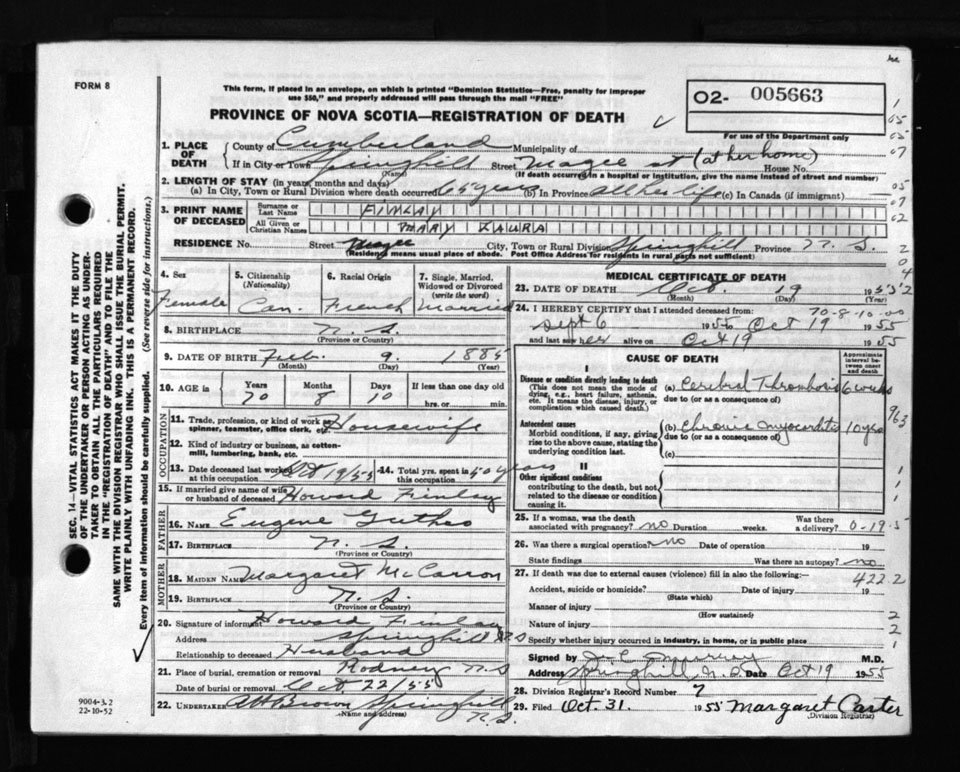 FORM 8
This form, if placed in an envelope, on which is printed "Dominion Statistics—Free, penalty for improper
use $50," and properly addressed will pass through the mail "FREE"
PROVINCE OF NOVA SCOTIA—REGISTRATION OF DEATH
02- 005663
For use of the Department only
1. PLACE OF DEATH
County of Cumberland Municipality of
If in City or Town Springhill Street Magee st (at her home) House No.
(Name) (If death occurred in a hospital or institution, give the name instead of street and number)
2. LENGTH OF STAY (in years, months and days)
(a) In City, Town or Rural Division where death occurred 65 years (b) In Province all her life (c) In Canada (if immigrant)
3. PRINT NAME OF DECEASED
Surname or Last Name FINLAY
All Given or Christian Names MARY LAURA
RESIDENCE No. Street Magee City, Town or Rural Division Springhill Province N.S.
(Residency means usual place of abode. Post Office Address for residents in rural parts not sufficient)
4. Sex Female
5. Citizenship (Nationality) Can.
6. Racial Origin French
7. Single, Married, Widowed or Divorced (write the word) Married
8. BIRTHPLACE N.S.
(Province or Country)
9. DATE OF BIRTH Feb. 9. 1885
(Month) (Day) (Year)
10. AGE in Years Months Days If less than one day old
70 8 10 hrs. or min.
OCCUPATION
11. Trade, profession, or kind of work as spinner, teamster, office clerk, etc. Housewife
12. Kind of industry or business, as cotton-mill, lumbering, bank, etc.
13. Date deceased last worked at this occupation Oct 19/55 14. Total yrs. spent in this occupation 50 years
15. If married give name of wife or husband of deceased Howard Finlay
FATHER
16. NAME Eugene
17. BIRTHPLACE N.S.
(Province or Country)
MOTHER
18. MAIDEN NAME Margaret McCarron
19. BIRTHPLACE N.S.
(Province or Country)
20. Signature of informant Howard Finlay
Address Springhill N.S
Relationship to deceased Husband
21. Place of burial, cremation or removal Rodney N.S
Date of burial or removal Oct. 22/55
22. UNDERTAKER A H Brown Springhill N.S.
(Name and address)
MEDICAL CERTIFICATE OF DEATH
23. DATE OF DEATH Oct. 19 1955
(Month) (Day) (Year)
70-8-10-00
24. I HEREBY CERTIFY that I attended deceased from:
Sept 6 1955 to Oct 19 1955
and last saw her alive on Oct 19 1955
CAUSE OF DEATH
Approximate interval between onset and death
I
Disease or condition directly leading to death
(This does not mean the mode of dying, e.g., heart failure, asthenia, etc. It means the disease, injury, or complication which caused death.)
(a) Cerebral Thrombosis 6 weeks
due to (or as a consequence of)
Antecedent causes
Morbid conditions, if any, giving rise to the above cause, stating the underlying condition last.
(b) Chronic myocarditis 10 yrs
due to (or as a consequence of)
(c)
II
Other significant conditions
contributing to the death, but not related to the disease or condition causing it.
25. If a woman, was the death associated with pregnancy? no Duration weeks. Was there a delivery?
26. Was there a surgical operation? no Date of operation 19
State findings Was there an autopsy? no
27. If death was due to external causes (violence) fill in also the following:—
422.2
Accident, suicide or homicide? Date of injury 19
(State which)
Manner of injury
(How sustained)
Nature of injury
Specify whether injury occurred in industry, in home, or in public place
Signed by M.D.
Address Springhill, N.S. Date Oct 19 1955
28. Division Registrar's Record Number 7
29. Filed Oct. 31. 1955 Margaret Carter
(Division Registrar)
SEC. 14—VITAL STATISTICS ACT MAKES IT THE DUTY
OF THE UNDERTAKER OR PERSON ACTING AS UNDER-
TAKER TO OBTAIN ALL THE PARTICULARS REQUIRED
IN THE "REGISTRATION OF DEATH" AND TO FILE THE
SAME WITH THE DIVISION REGISTRAR WHO SHALL ISSUE THE BURIAL PERMIT.
WRITE PLAINLY WITH UNFADING INK. THIS IS A PERMANENT RECORD.
Every item of information should be carefully supplied. (See reverse side for instructions.)
9004-3.2
22-10-52